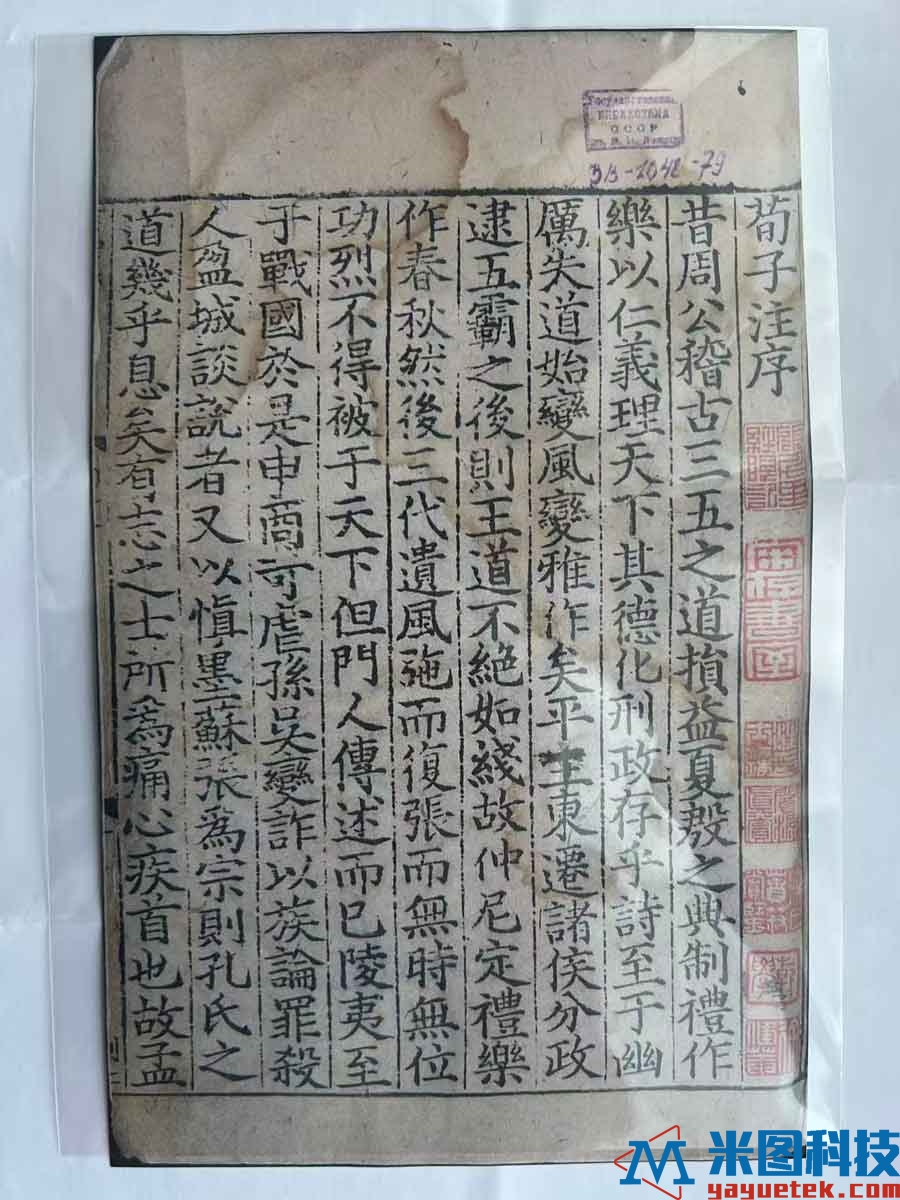 荀子注序
昔周公稽古三五之道損益夏殷之典制禮作
樂以仁義理天下其德化刑政存乎詩至于幽
厲失道始變風變雅作矣平王東遷諸侯分政
逮五霸之後則王道不絶如綫故仲尼定禮樂
作春秋然後三代遺風弛而復張而無時無位
功烈不得被于天下但門人傳述而已陵夷至
于戰國於是申商苛虐孫吳變詐以族論罪殺
人盈城談說者又以慎墨蘇張爲宗則孔氏之
道幾乎息矣有志之士所爲痛心疾首也故孟
БИБЛИОТЕКА
СССР
米图科技
yayuetek.com